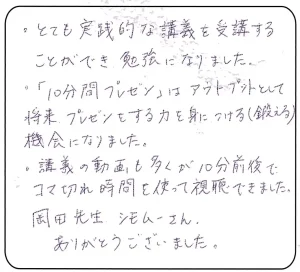 ・とても実践的な講義を受講する
ことができ 勉強になりました。
・「10分間プレゼン」は アウトプットとして
将来プレゼンをする力を身につける(鍛える)
機会になりました。
・講義の動画も多くが10分前後で
コマ切れ時間を使って視聴できました。
岡田先生 シモムーさん、
ありがとうございました。